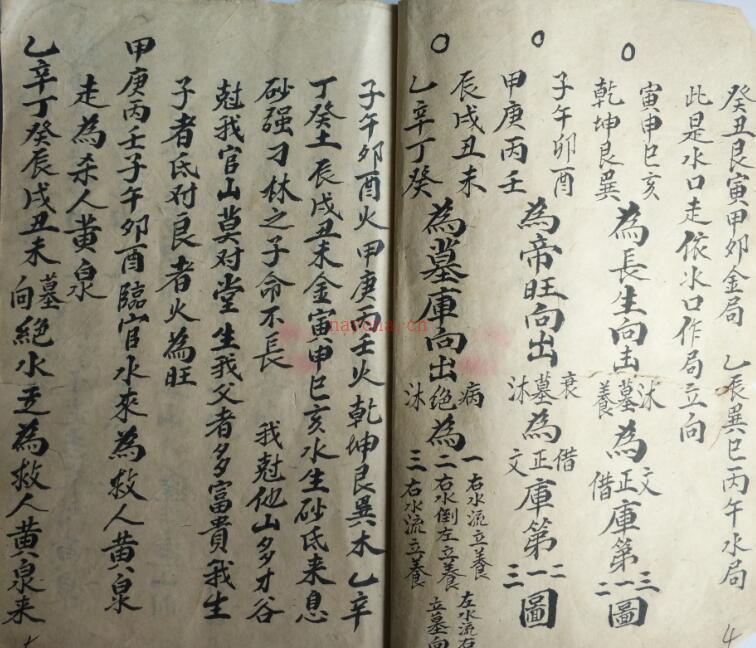 癸丑艮寅甲卯金局　乙辰巽巳丙午水局
此是水口走依水口作局立向
○寅申巳亥
乾坤艮巽
為長生向出沐墓養為文正借庫第三一二圖
○子午卯酉
甲庚丙壬
為帝旺向出衰墓沐為借正文庫第二一三圖
○辰戌丑未
乙辛丁癸
為墓庫向出病絕沐為
一右水流立養　左水流右
二右水倒左立養　立墓向
三右水流立養
4
子午卯酉火甲庚丙壬火乾坤艮巽木乙辛
丁癸土辰戌丑未金寅申巳亥水生砂底来息
砂强刁林之子命不長　我尅他山多才谷
尅我官山莫对堂生我父者多富貴我生
子者底对良者火為旺
甲庚丙壬子午卯酉臨官水來為救人黄泉
走為杀人黄泉
乙辛丁癸辰戌丑未墓向絕水走為救人黄泉来
nayona.cn